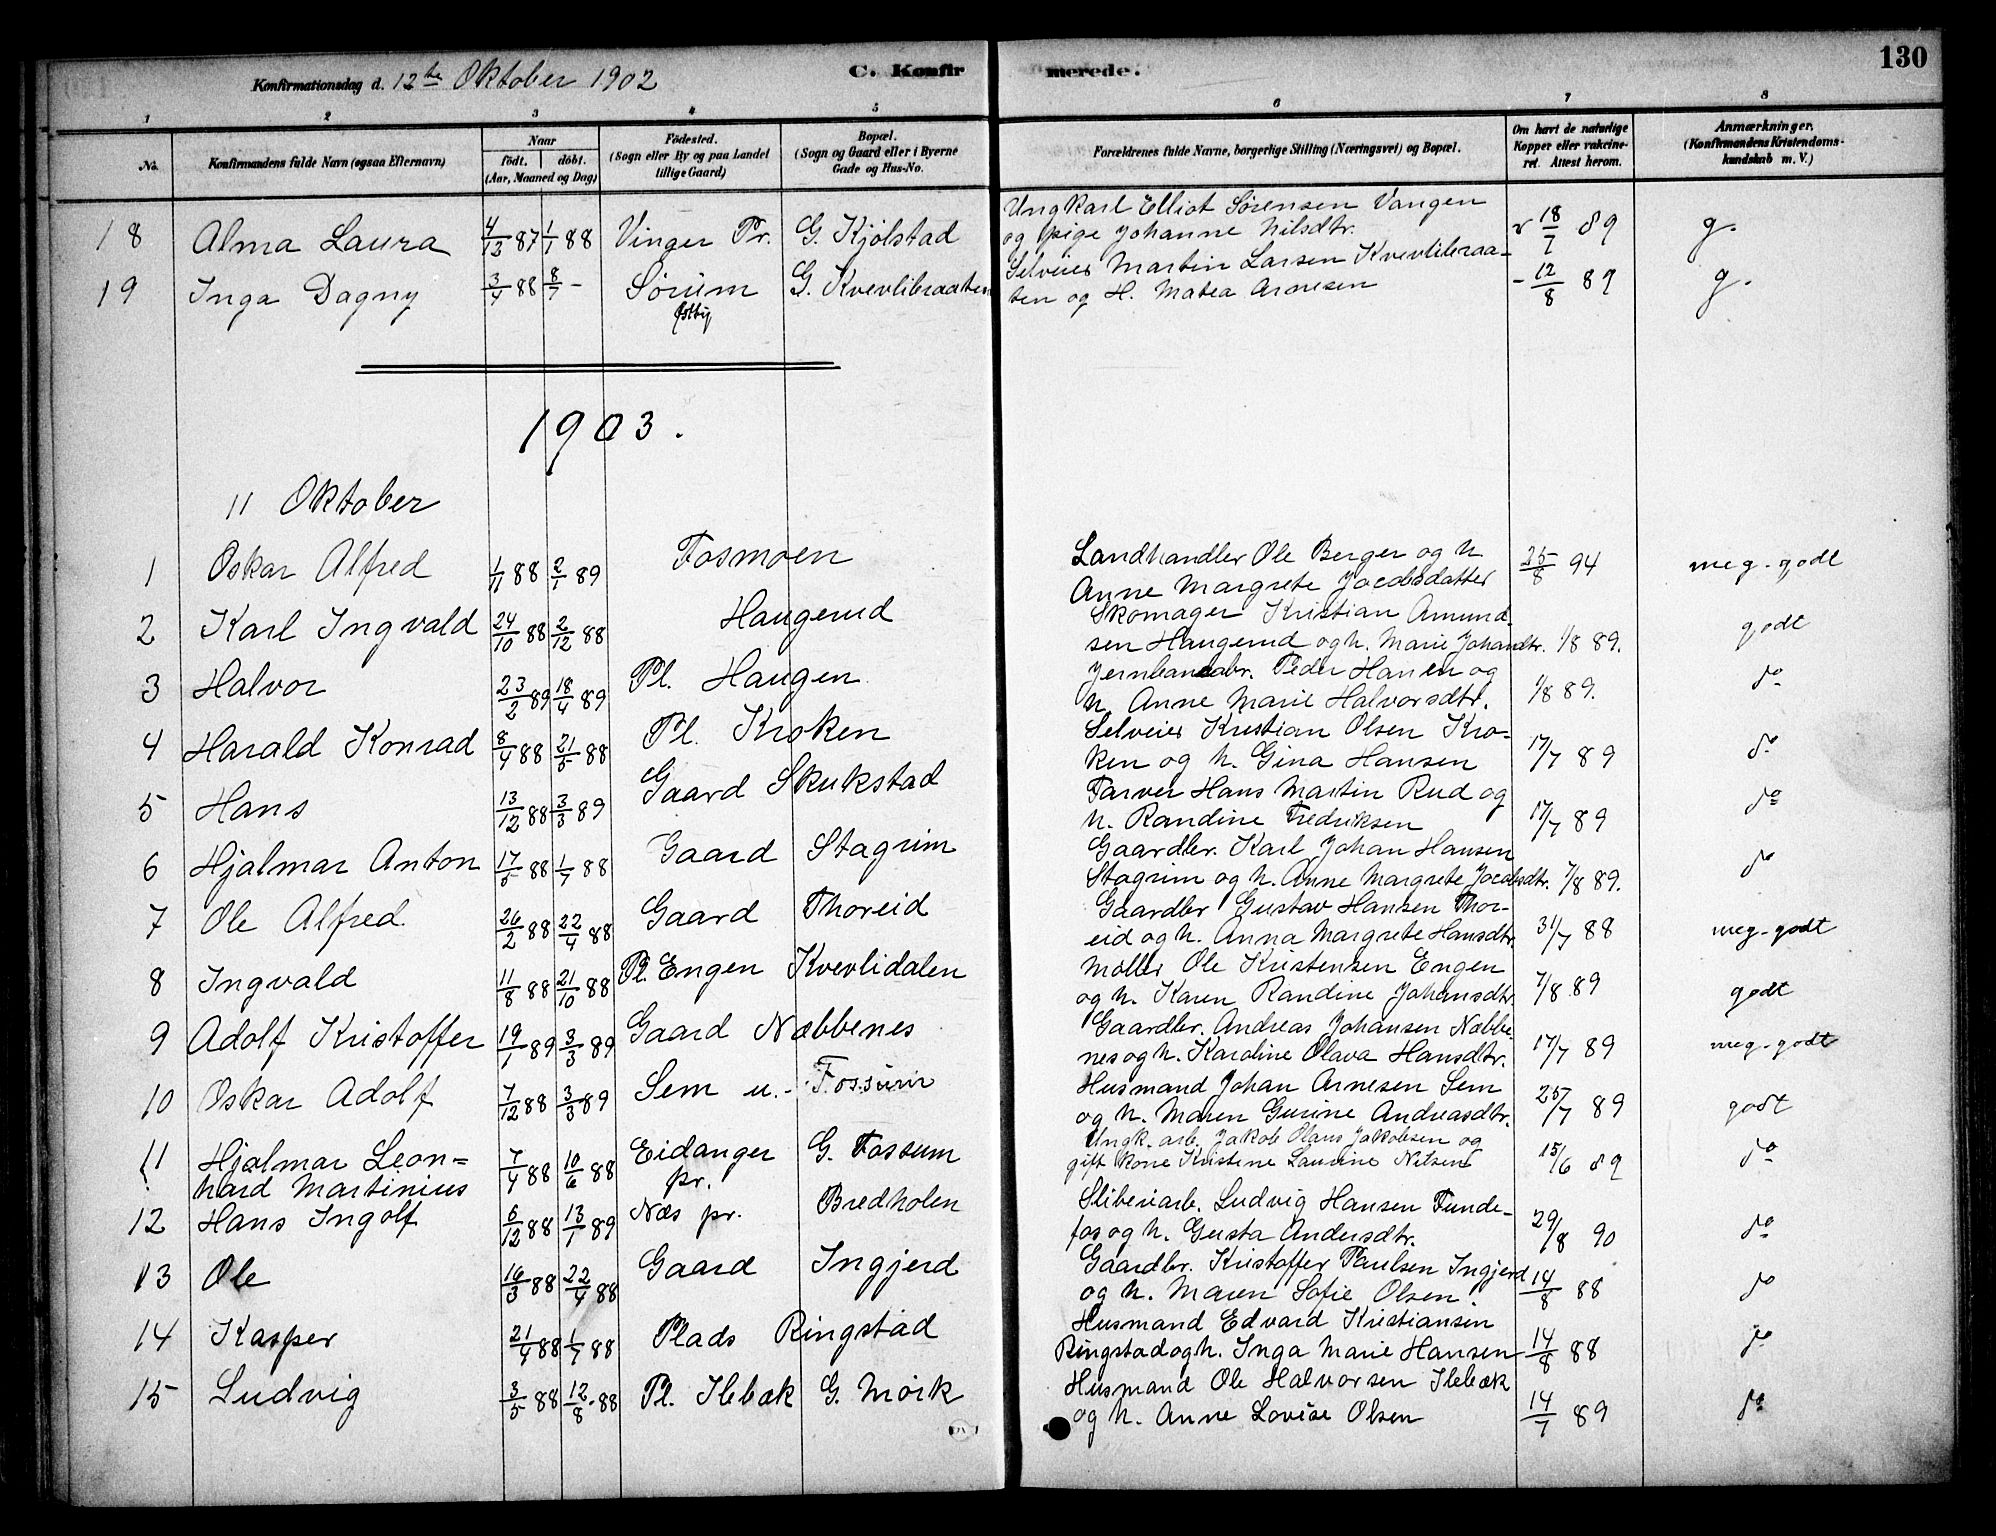 130
Konfirmationsdag d. 12te Oktober 1902 C. Konfir merede.
1 2 3 4 5 6 7 8
No. Konfirmandens fulde Navn (ogsaa Efternavn) Naar födt. döbt. (Aar, Maaned og Dag) Födested. (Sogn eller By og paa Landet tillige Gaard) Bopæl. (Sogn og Gaard eller i Byerne Gade og Hus-No. Forældrenes fulde Navne, borgerlige Stilling (Næringsvei) og Bopæl. Om havt de naturlige Kopper eller vakcineret. Attest herom. Anmærkninger. (Konfirmandens Kristendomskundskab m. V.)
18 Alma Laura 4/12 87 1/1 88 Vinger Pr. G. Kjölstad Ungkarl Elliot Sørensen Vangen
og pige Johanne Nilsdtr. v 18/7 89 g.
19 Inga Dagny 3/4 88 8/7 - Sørum Østby G. Kvevlibraaten Selveier Martin Larsen Kvevlibraa-
ten og H. Matea Arnesen - 12/8 89 g.
1903.
11 Oktober
1 Oskar Alfred 1/11 88 2/1 89 Fosmoen Landhandler Ole Berger og h.
Anne Margrete Jacobsdatter 25/8 94 meg. godt
2 Karl Ingvald 24/10 88 2/12 88 Haugerud Skomager Kristian Amund-
sen Haugerud og h. Marie Johandtr. 1/8 89. godt
3 Halvor 23/2 89 18/4 89 Pl. Haugen Jernbanearb. Peder Hansen og
h. Anne Marie Halvorsdtr. 1/8 89. do
4 Harald Konrad 8/4 88 21/5 88 Pl. Kroken Selveier Kristian Olsen Kro-
ken og h. Gina Hansen 17/7 89 do
5 Hans 13/12 88 3/3 89 Gaard Skukstad Farver Hans Martin Rud og
h. Randine Fredriksen 17/7 89 do
6 Hjalmar Anton 17/5 88 1/7 88 Gaard Stagrim Gaardbr. Karl Johan Hansen
Stagrim og h. Anne Margrete Jacobsdtr. 7/8 89. do
7 Ole Alfred 26/2 88 22/4 88 Gaard Thoreid Gaardbr Gustav Hansen Thor-
eid og h. Anna Margrete Hansdtr 31/7 88 meg. godt
8 Ingvald 11/8 88 21/10 88 Pl. Engen Kvevlidalen Møller Ole Kristensen Engen
og h. Karen Randine Johansdtr. 7/8 89 godt
9 Adolf Kristoffer 19/1 89 3/3 89 Gaard Næbbenes Gaardbr. Andreas Johansen Næbbe-
nes og h. Karoline Olava Hansdtr. 17/7 89 meg. godt
10 Oskar Adolf 7/12 88 3/3 89 Sem u. Fossum Husmand Johan Arnesen Sem
og h. Maren Gurine Andreasdtr. 25/7 89 godt
11 Hjalmar Leon=
hard Martinius 7/4 88 10/6 88 Eidanger pr. G. Fossum Ungk. arb. Jakob Olaus Jakobsen og
gift kone Kristine Laurine Nilsen 15/6 89 do
12 Hans Ingolf 6/12 88 13/1 89 Næs pr. Bredholen Sliberiarb. Ludvig Hansen Funde-
fos og h. Gusta Andersdtr. 29/8 90 do
13 Ole 16/3 88 22/4 88 Gaard Ingjerd Gaardbr. Kristoffer Paulsen Ingjerd
og h. Maren Sofie Olsen. 14/8 88 do
14 Kasper 21/4 88 1/7 88 Plads Ringstad Husmand Edvard Kristiansen
Ringstad og h. Inga Marie Hansen 14/8 88 do
15 Ludvig 3/5 88 12/8 88 Pl. Ilebæk G. Mörk Husmand Ole Halvorsen Ilebæk
og h. Anne Lovise Olsen 14/7 89 do